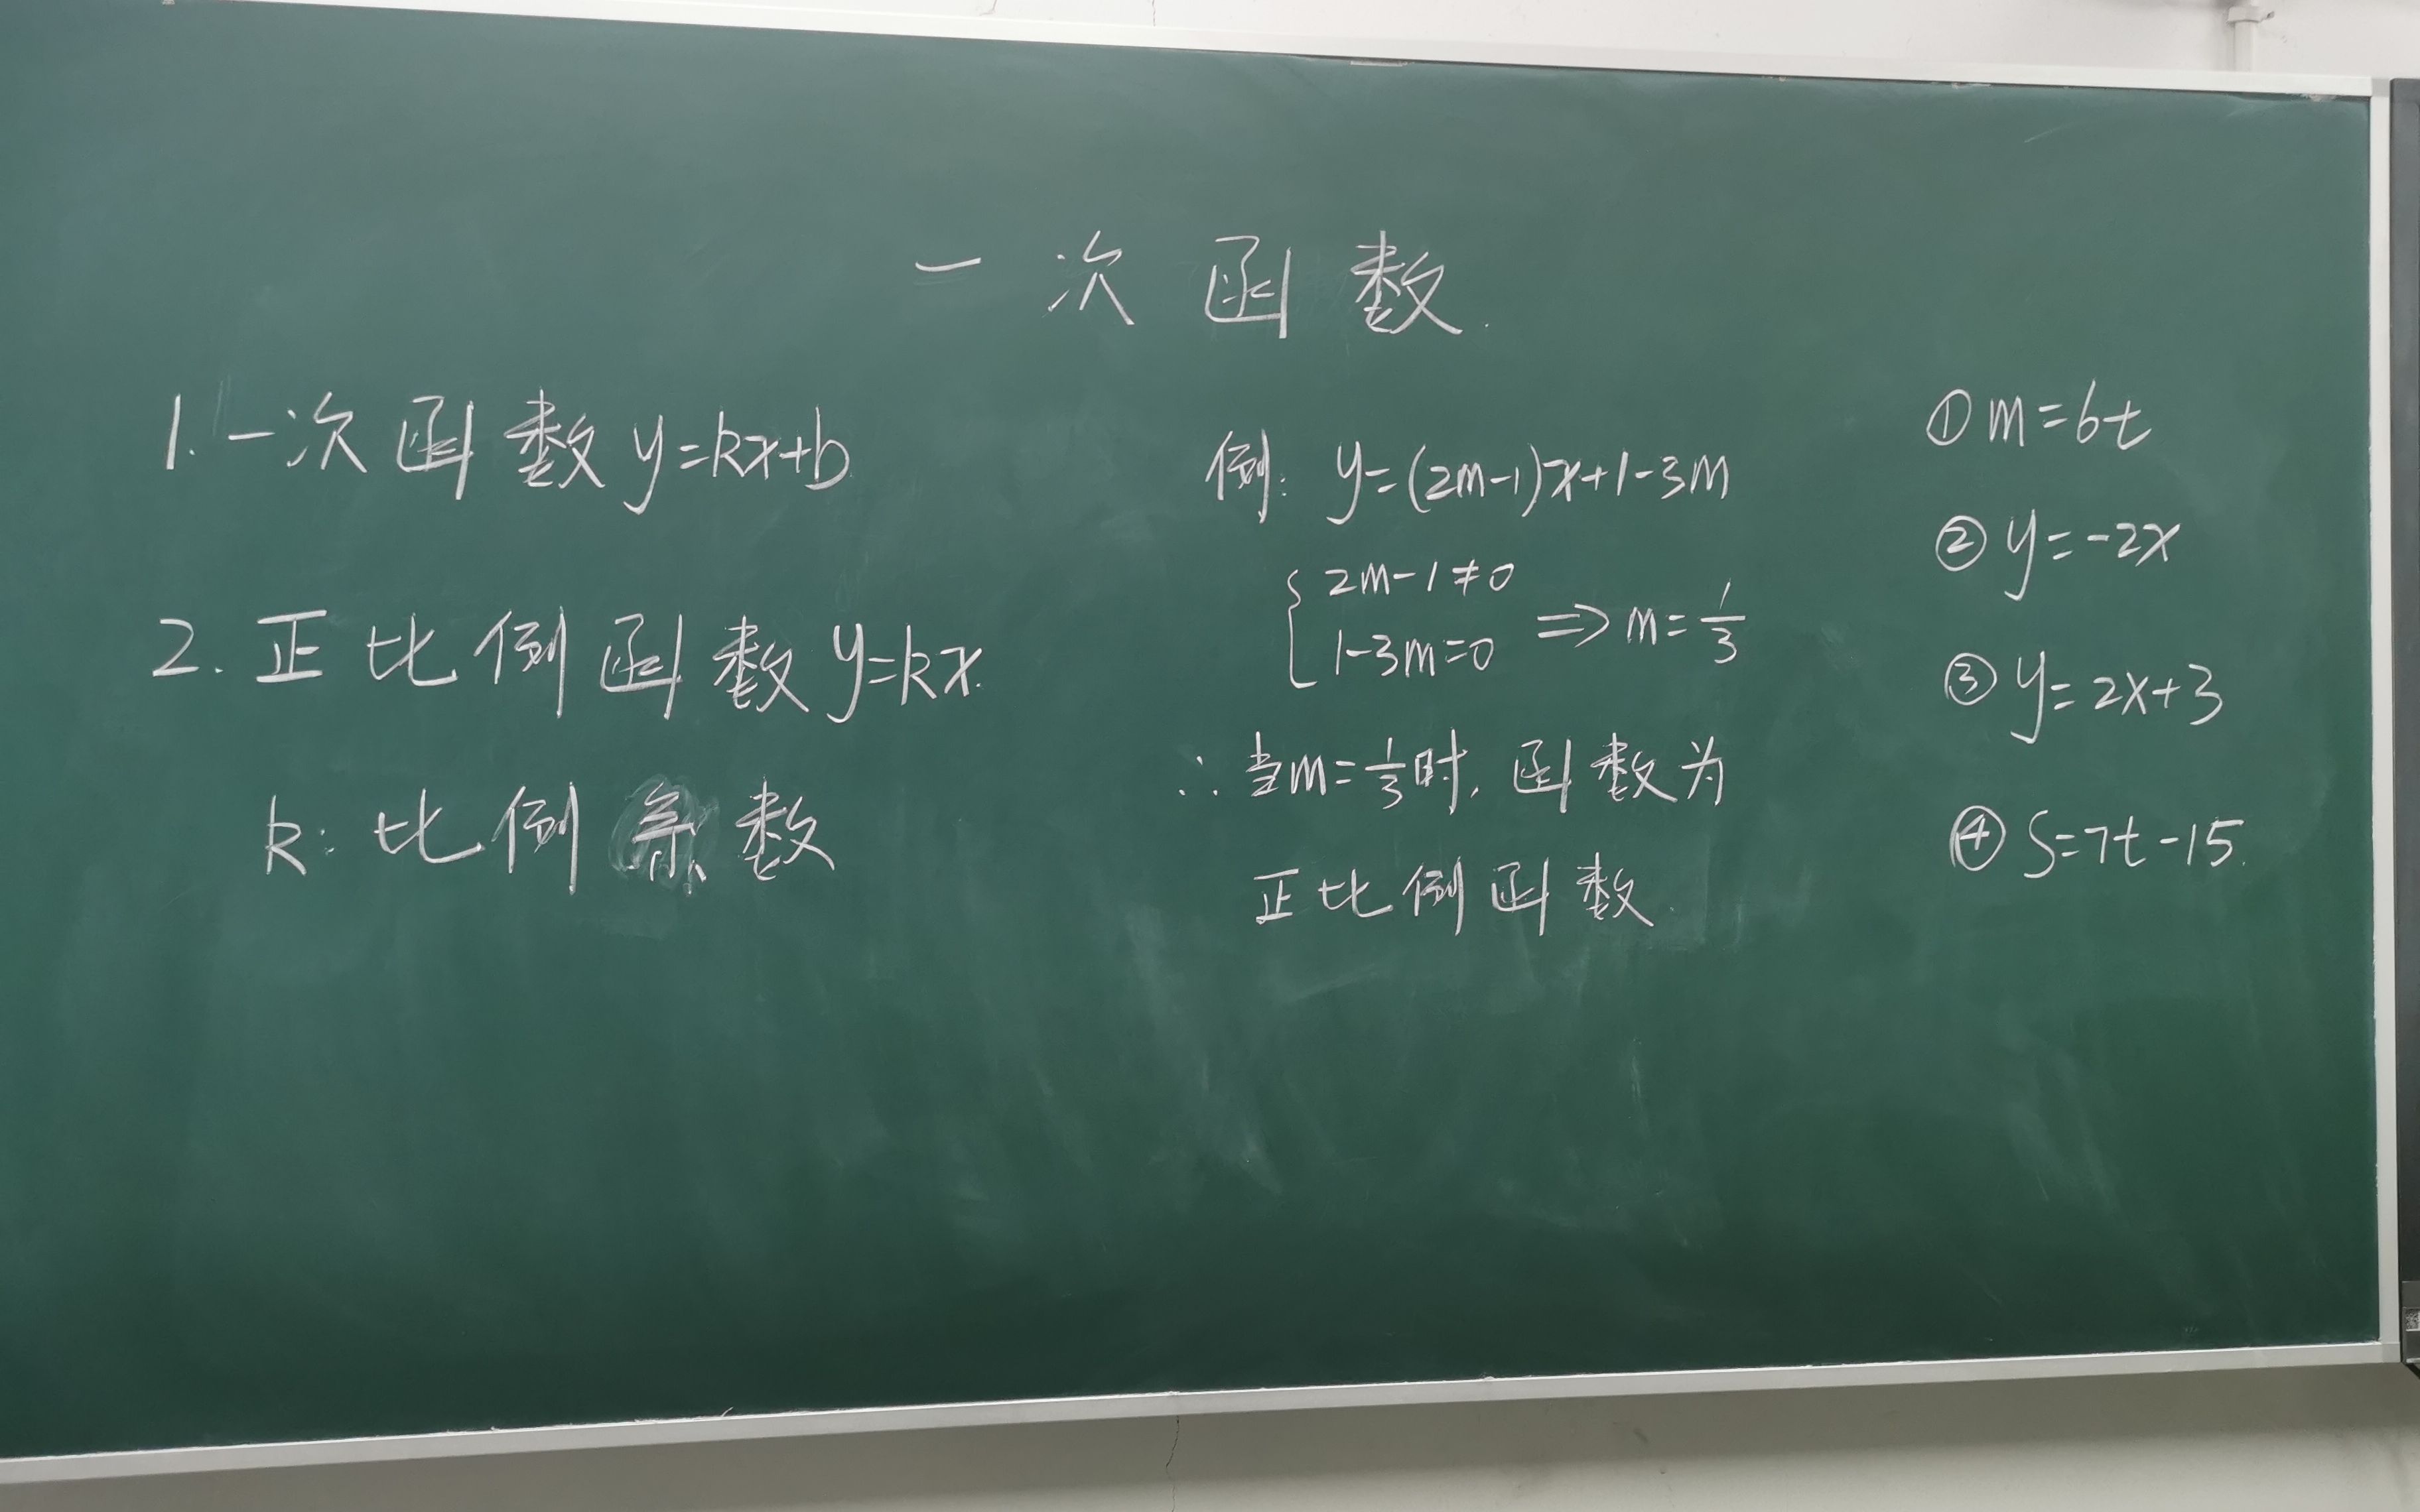 一次函数.
1.一次函数y=kx+b.
2.正比例函数y=kx.
k:比例系数
例: y=(2m-1)x+1-3m
{2m-1≠0
1-3m=0 ⇒ m=1/3
∴当m=1/3时,函数为
正比例函数.
①m=6t
②y=-2x
③y=2x+3
④S=7t-15.